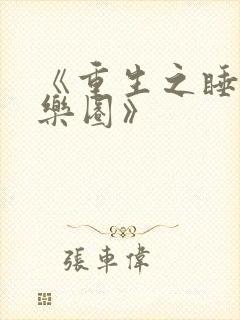 《重生之睡
樂園》
張車偉